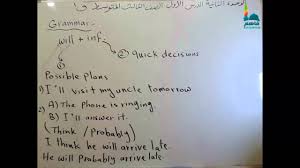 الوحدة الثانية الدرس الأول الصف الثالث المتوسط ف١
Grammar
will + inf.
② quick decisions
Possible plans
1) I'll visit my uncle tomorrow
2) A) The phone is ringing.
B) I'll answer it.
(Think / Probably)
I think he will arrive late.
He will Probably arrive late.